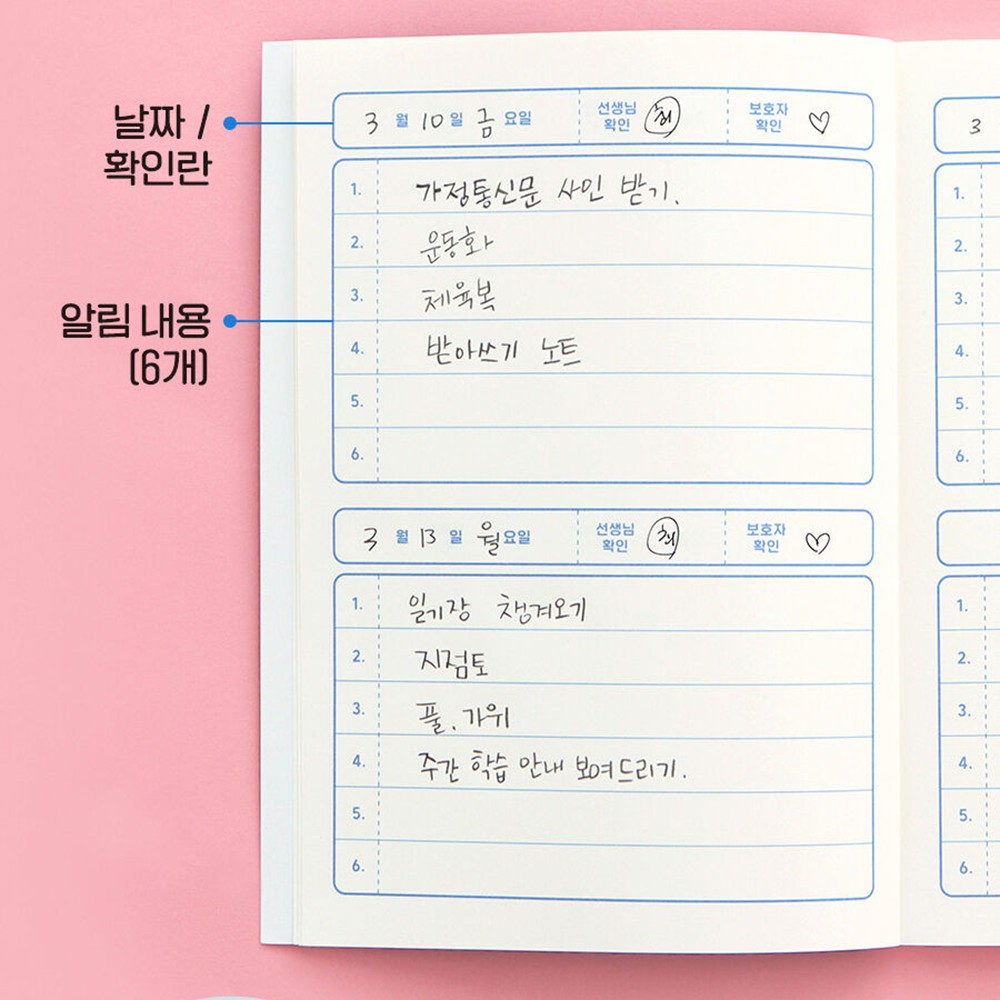 날짜 /
확인란
알림 내용
(6개)
3 월 10 일 금 요일 선생님 확인 최 보호자 확인 ♡
1. 가정통신문 사인 받기.
2. 운동화
3. 체육복
4. 받아쓰기 노트
5.
6.
3 월 13 일 월 요일 선생님 확인 최 보호자 확인 ♡
1. 일기장 챙겨오기
2. 지점토
3. 풀, 가위
4. 주간 학습 안내 보여드리기.
5.
6.
3
1.
2.
3.
4.
5.
6.
1.
2.
3.
4.
5.
6.